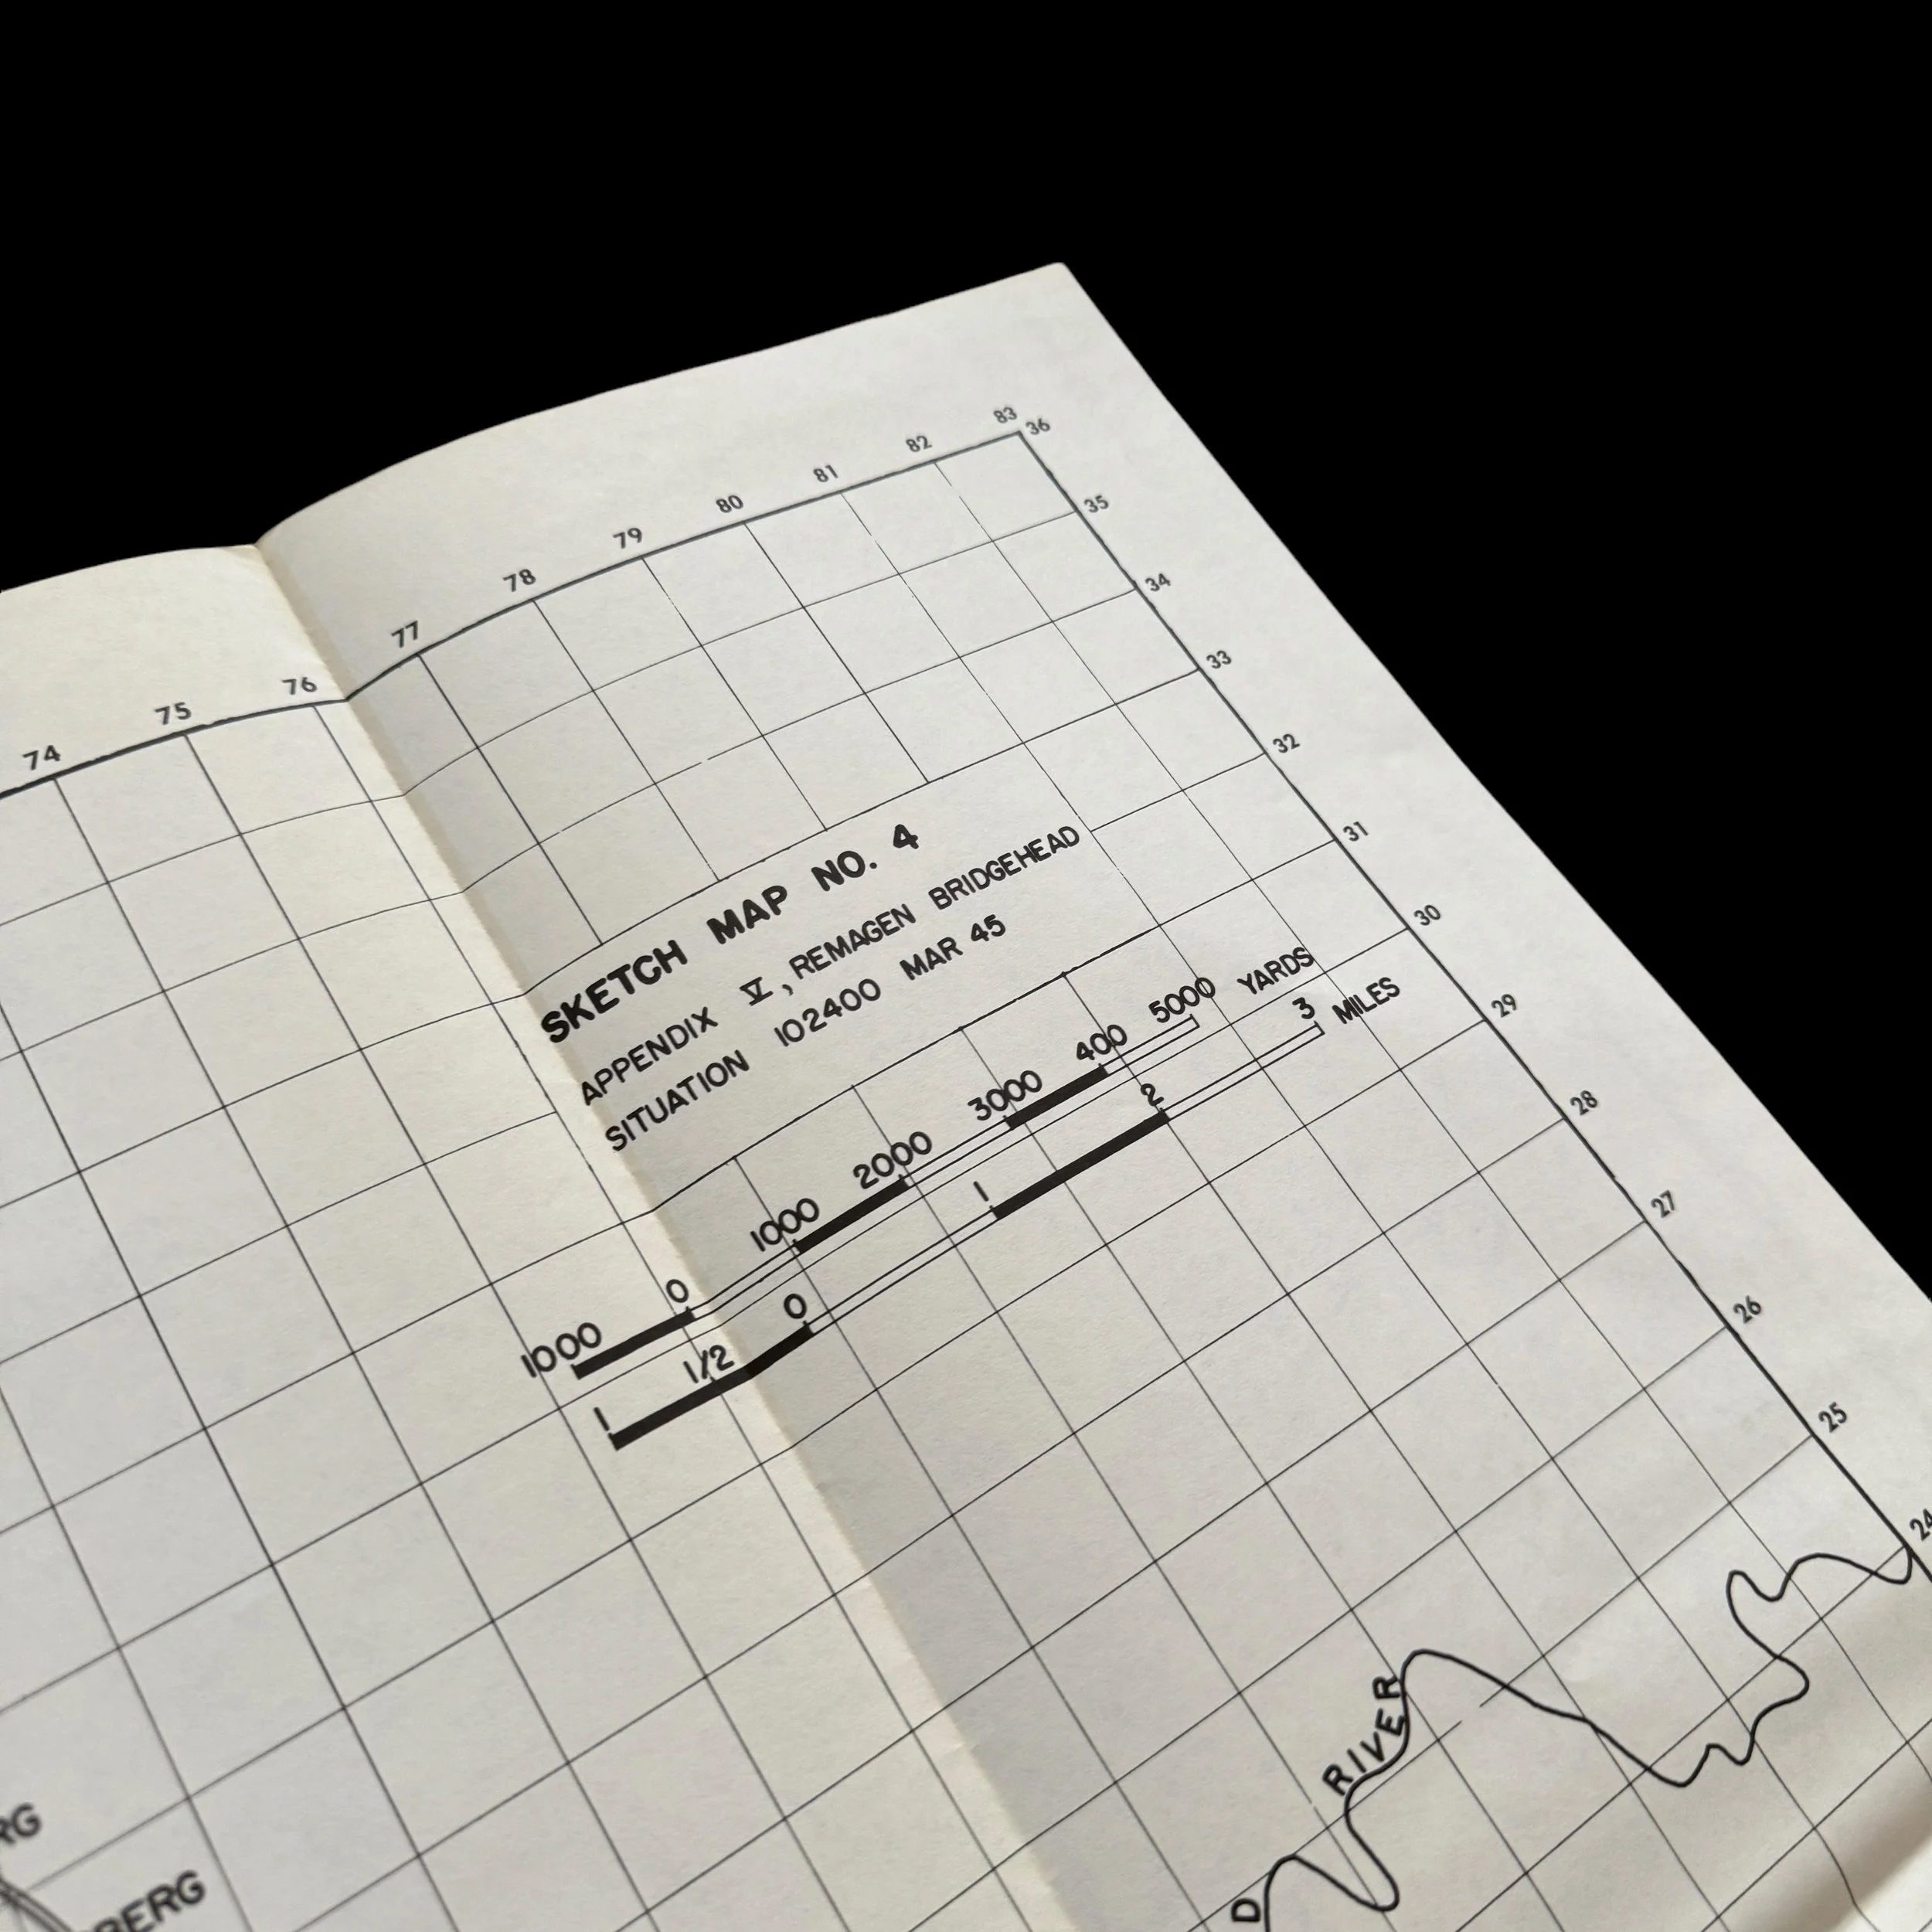 74 75 76 77 78 79 80 81 82 83
36
35
34
33
32
31
30
29
28
27
26
25
24
SKETCH MAP NO. 4
APPENDIX V, REMAGEN BRIDGEHEAD
SITUATION 102400 MAR 45
1000 0 1000 2000 3000 400 5000 YARDS
1 1/2 0 1 2 3 MILES
RIVER
D
RG
BERG